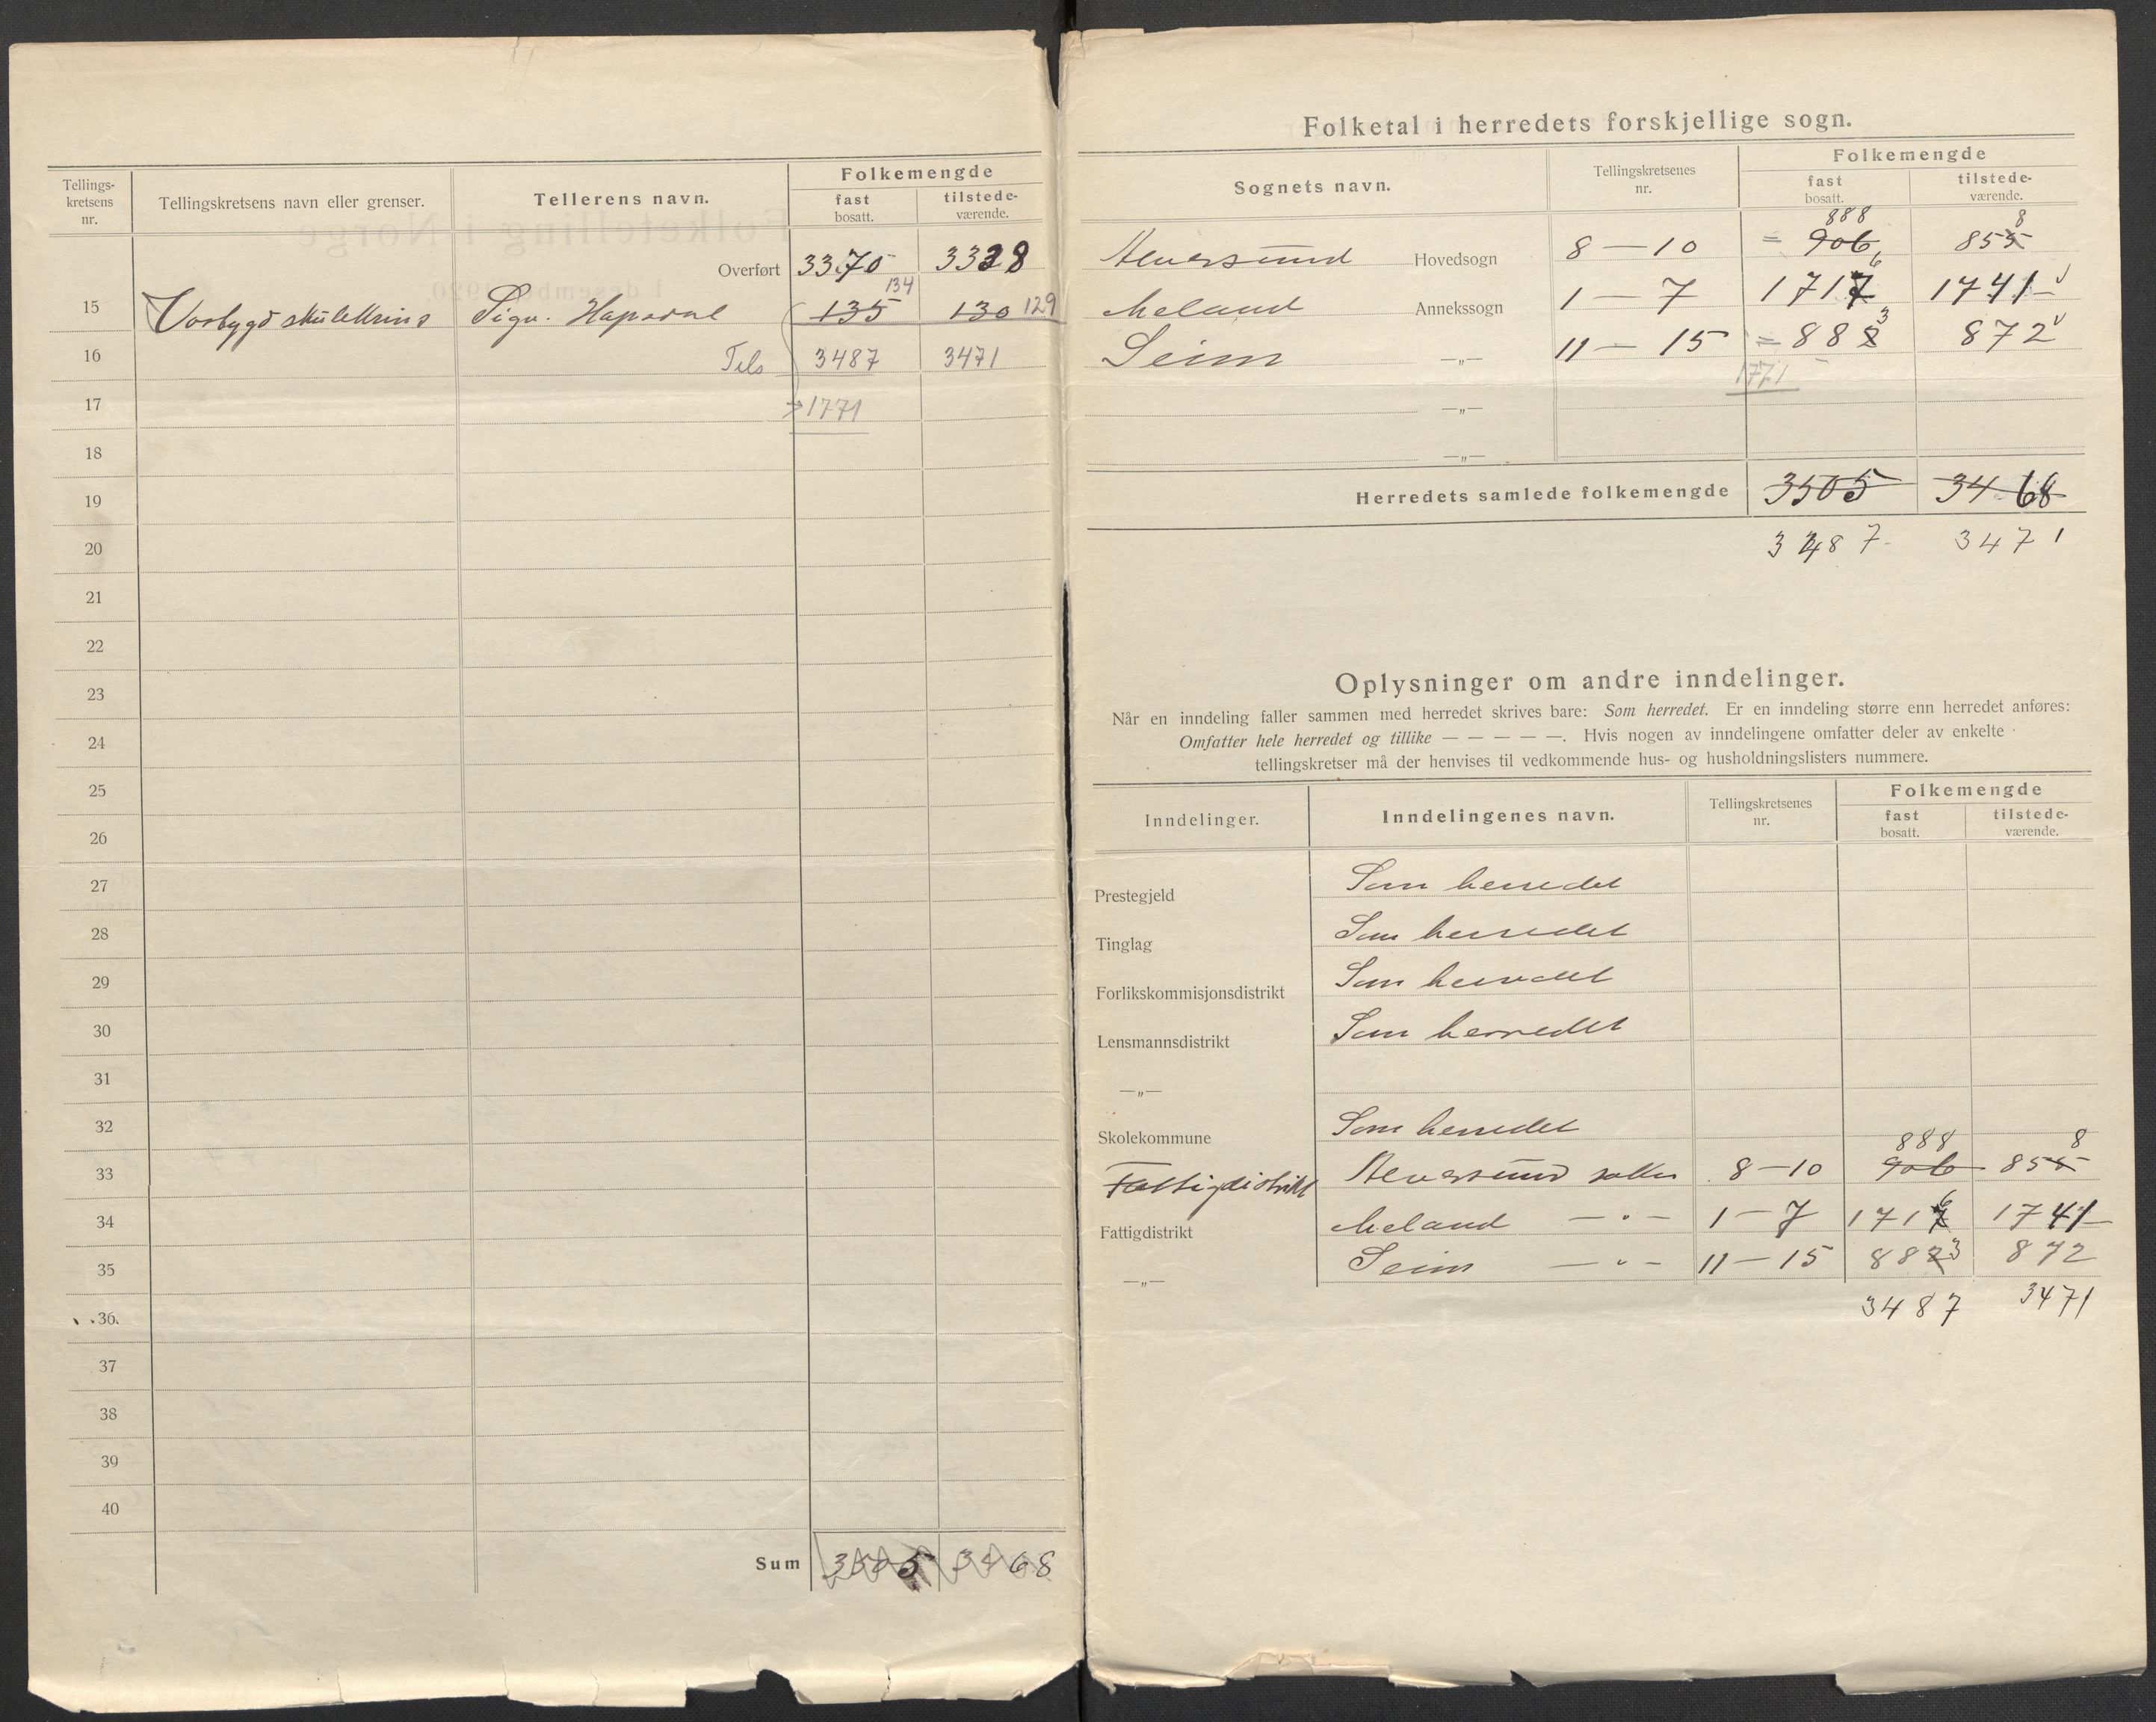 Tellings-kretsens nr. Tellingskretsens navn eller grenser. Tellerens navn. Folkemengde fast bosatt. tilstede-værende.
Overført 3370 3338
134
15 Vorbygd skulekrins Sigv. 135 130 129
16 Tils 3487 3471
17 1771
18
19
20
21
22
23
24
25
26
27
28
29
30
31
32
33
34
35
36.
37
38
39
40
Sum 3505 3468
Folketal i herredets forskjellige sogn.
Sognets navn. Tellingskretsenes nr. Folkemengde fast bosatt. tilstede-værende.
888 8
Alversund Hovedsogn 8 — 10 = 906 855
6
Meland Annekssogn 1 — 7 1717 1741
3
Seim —„— 11 — 15 = 882 872
1771
—„—
—„—
Herredets samlede folkemengde 3505 3468
3487 3471
Oplysninger om andre inndelinger.
Når en inndeling faller sammen med herredet skrives bare: Som herredet. Er en inndeling større enn herredet anføres:
Omfatter hele herredet og tillike — — — — —. Hvis nogen av inndelingene omfatter deler av enkelte
tellingskretser må der henvises til vedkommende hus- og husholdningslisters nummere.
Inndelinger. Inndelingenes navn. Tellingskretsenes nr. Folkemengde fast bosatt. tilstede-værende.
Prestegjeld Som herredet
Tinglag Som herredet
Forlikskommisjonsdistrikt Som herredet
Lensmannsdistrikt Som herredet
—„—
Skolekommune Som herredet
888 8
Fattigdistrikt Alversund sokn 8—10 906 855
6
Fattigdistrikt Meland —„— 1—7 1717 1741
—„— Seim —„— 11—15 882 3 872
3487 3471